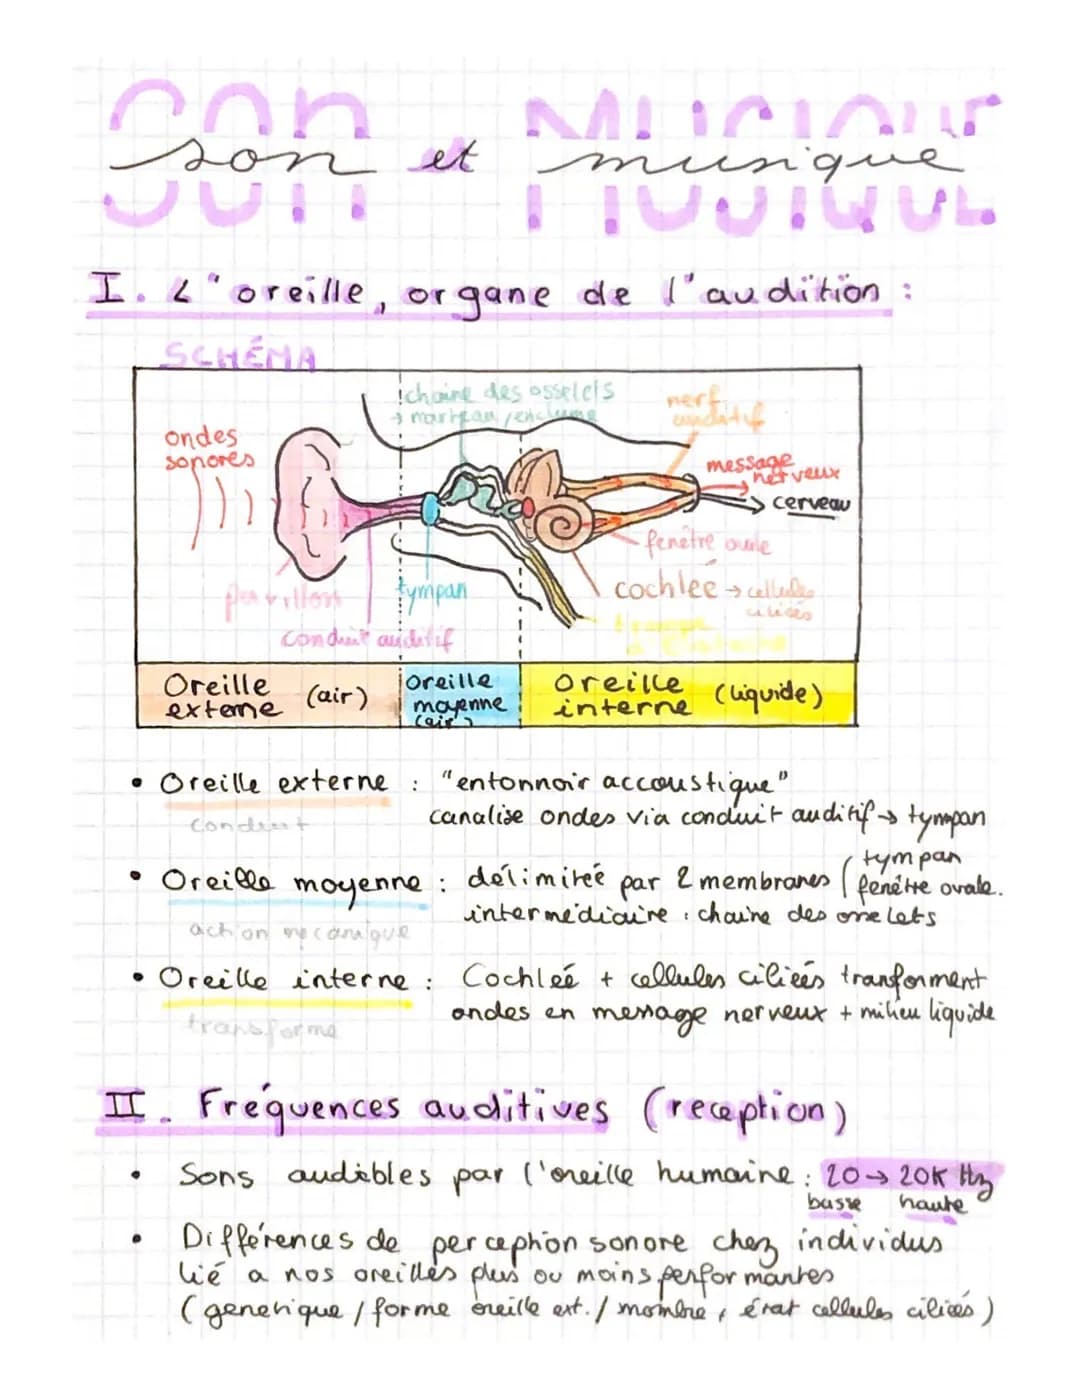 SON MUSIQUE
son et musique
I. L'oreille, organe de l'audition :
SCHÉMA
chaine des osselets
→ marteau / enclume
nerf
auditif
ondes
sonores
message
nerveux
→ cerveau
fenêtre ovale
pavillon
tympan
cochleé → cellules
ciliées
conduit auditif
Oreille
externe (air)
Oreille
moyenne
(air)
Oreille
interne (liquide)
• Oreille externe : "entonnoir accoustique"
conduit
canalise ondes via conduit auditif → tympan
• Oreille moyenne : délimiteé par 2 membranes ( tympan
fenêtre ovale.
intermédiaire : chaine des osselets
action mécanique
• Oreille interne : Cochleé + cellules cilieés transforment
ondes en message nerveux + milieu liquide
transforme
II. Fréquences auditives (reception)
• Sons audibles par l'oreille humaine : 20 → 20K Hz
basse haute
• Différences de perception sonore chez individus
lié a nos oreilles plus ou moins performantes
(genetique / forme oreille ext. / nombre, état cellules ciliées)